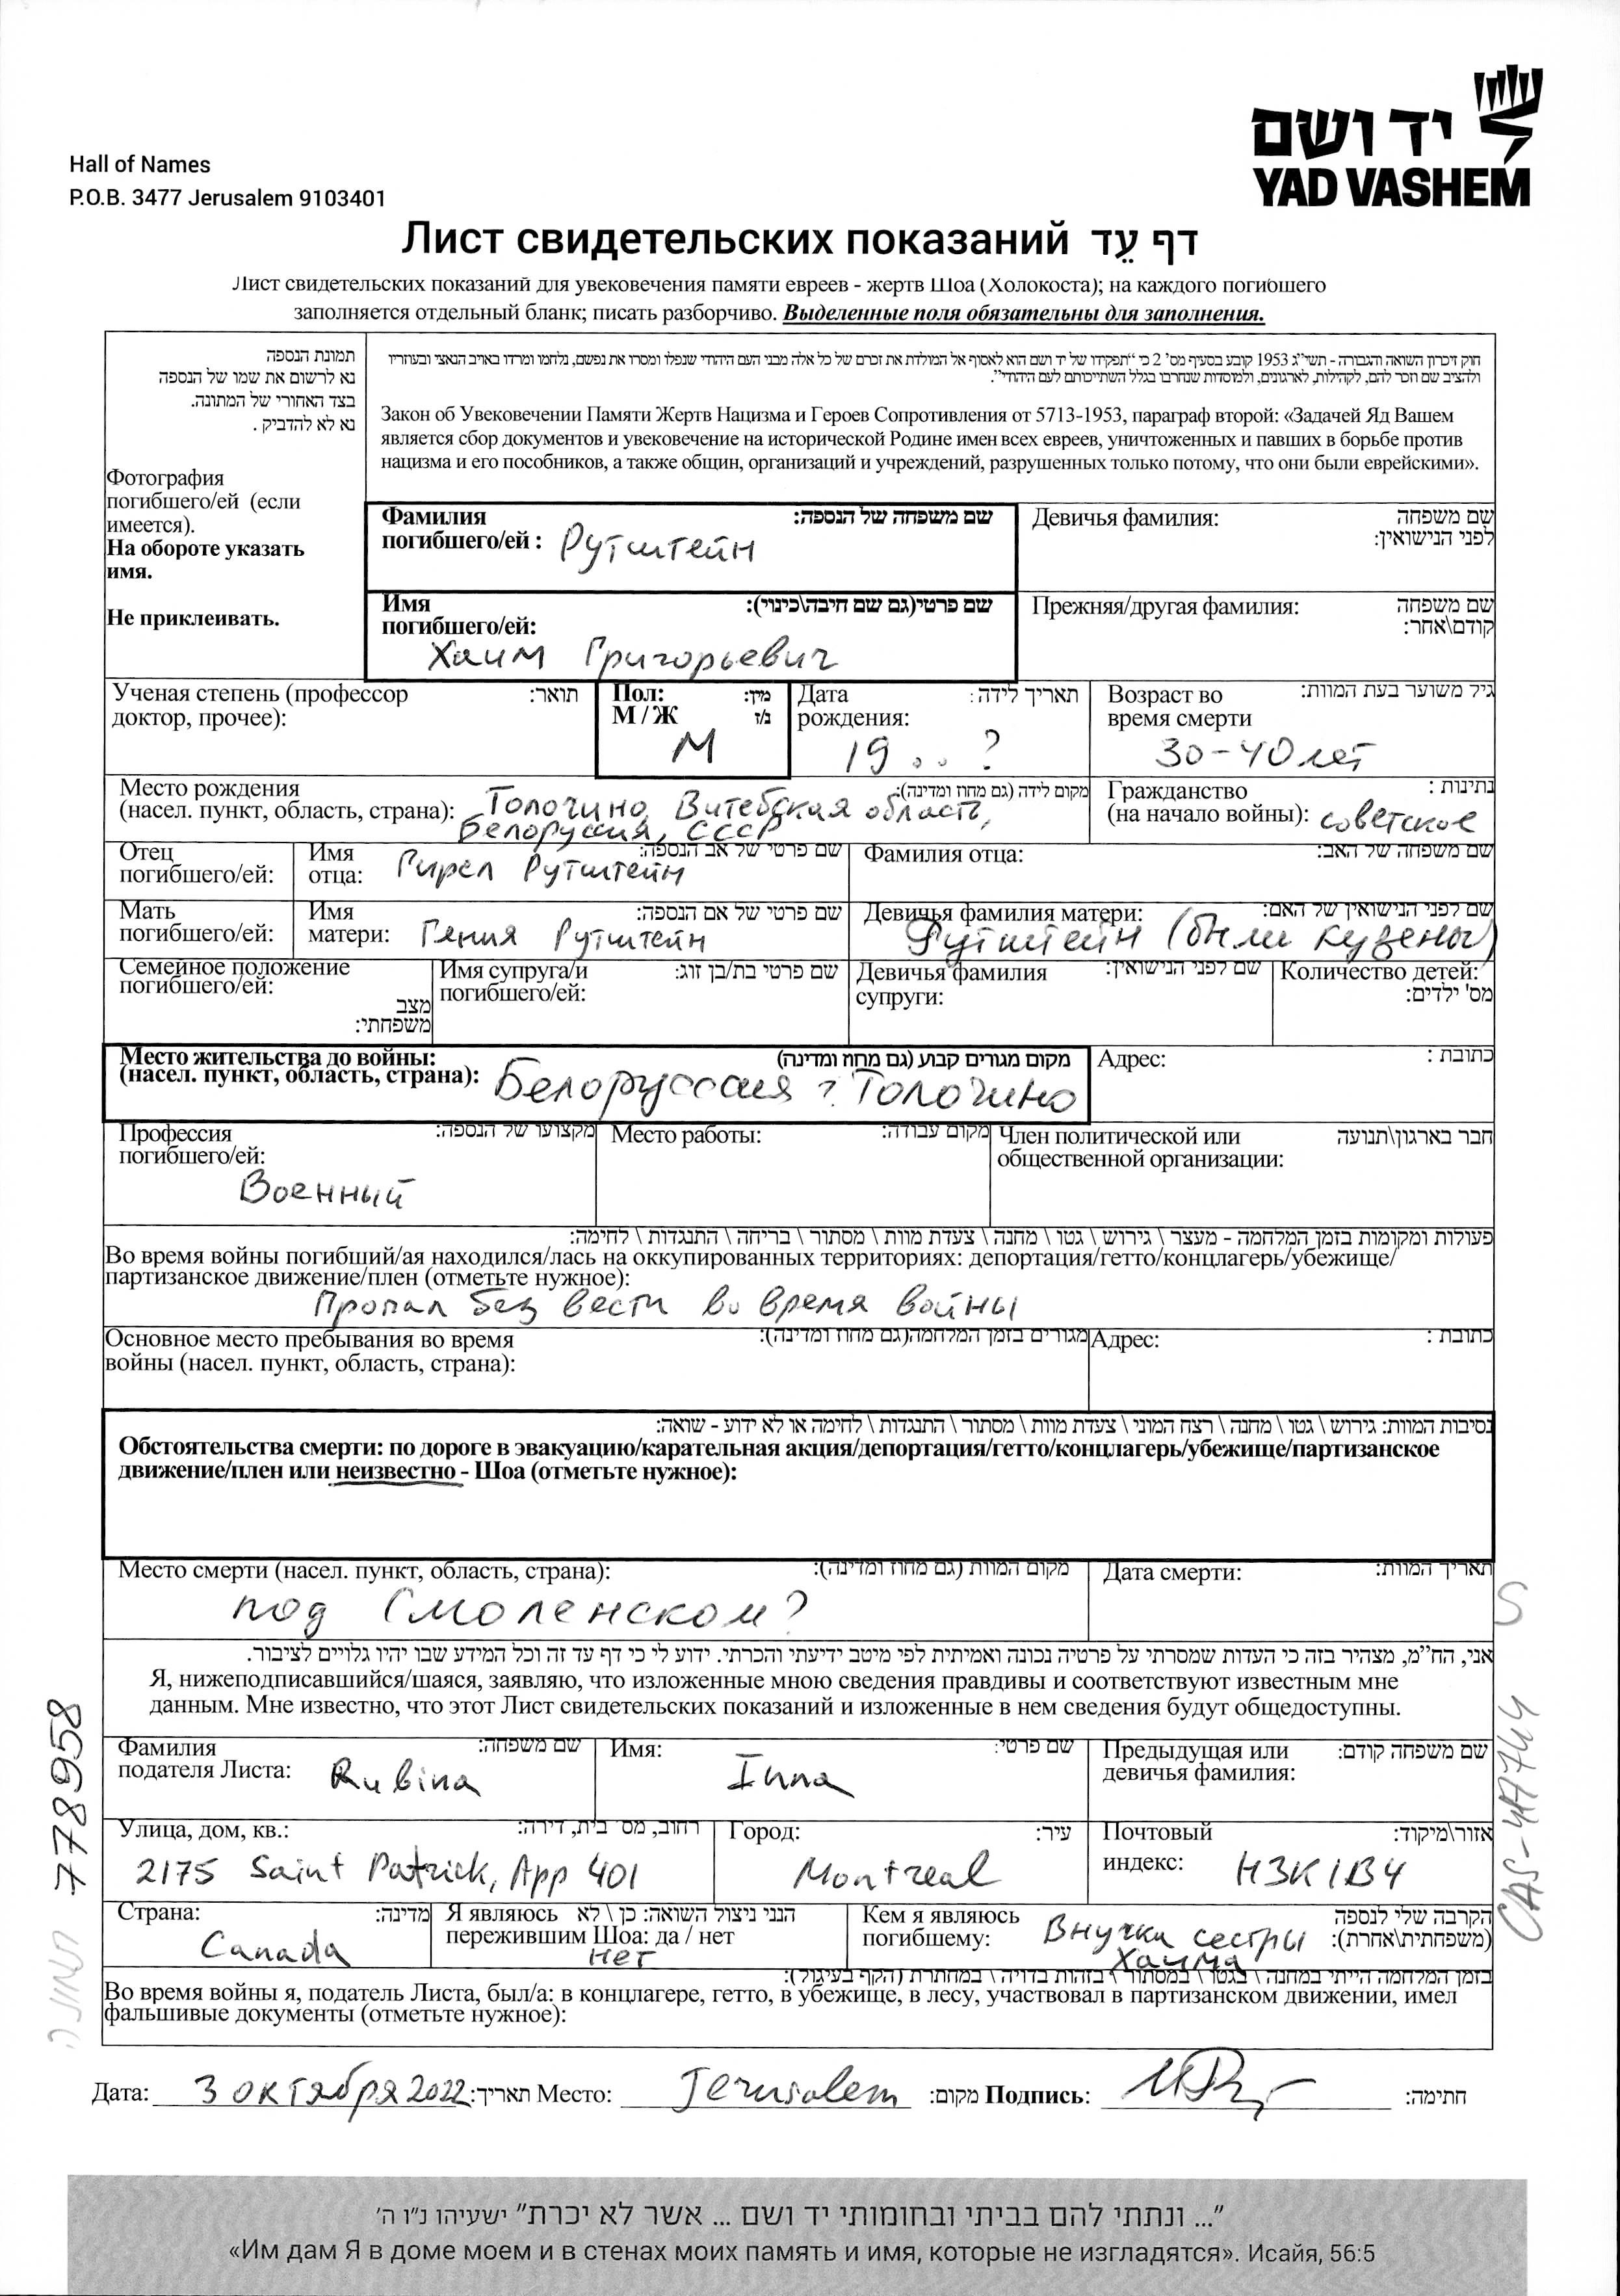 יד ושם
YAD VASHEM
Hall of Names
P.O.B. 3477 Jerusalem 9103401
Лист свидетельских показаний דף עֵד
Лист свидетельских показаний для увековечения памяти евреев - жертв Шоа (Холокоста); на каждого погибшего
заполняется отдельный бланк; писать разборчиво. Выделенные поля обязательны для заполнения.
תמונת הנספה
נא לרשום את שמו של הנספה
בצד האחורי של המתונה.
נא לא להדביק .
Фотография
погибшего/ей (если
имеется).
На обороте указать
имя.
Не приклеивать.
חוק זיכרון השואה והגבורה - תשי"ג 1953 קובע בסעיף מס' 2 כי "תפקידו של יד ושם הוא לאסוף אל המולדת את זכרם של כל אלה מבני העם היהודי שנפלו ומסרו את נפשם, נלחמו ומרדו באויב הנאצי ובעוזריו
ולהציב שם וזכר להם, לקהילות, לארגונים, ולמוסדות שנחרבו בגלל השתייכותם לעם היהודי".
Закон об Увековечении Памяти Жертв Нацизма и Героев Сопротивления от 5713-1953, параграф второй: «Задачей Яд Вашем
является сбор документов и увековечение на исторической Родине имен всех евреев, уничтоженных и павших в борьбе против
нацизма и его пособников, а также общин, организаций и учреждений, разрушенных только потому, что они были еврейскими».
Фамилия שם משפחה של הנספה:
погибшего/ей : Рутштейн
Девичья фамилия: שם משפחה
לפני הנישואין:
Имя שם פרטי(גם שם חיבה\כינוי):
погибшего/ей:
Хаим Григорьевич
Прежняя/другая фамилия: שם משפחה
קודם\אחר:
Ученая степень (профессор תואר:
доктор, прочее):
Пол: מין:
М / Ж נ/ז
М
Дата תאריך לידה:
рождения:
19 . . ?
Возраст во גיל משוער בעת המוות:
время смерти
30-40 лет
Место рождения מקום לידה (גם מחוז ומדינה):
(насел. пункт, область, страна): Толочино, Витебская область,
Белоруссия, СССР
Гражданство נתינות :
(на начало войны): советское
Отец
погибшего/ей:
Имя שם פרטי של אב הנספה:
отца: Гирел Рутштейн
Фамилия отца: שם משפחה של האב:
Мать
погибшего/ей:
Имя שם פרטי של אם הנספה:
матери: Гения Рутштейн
Девичья фамилия матери: שם לפני הנישואין של האם:
Рутштейн (были кузены)
Семейное положение
погибшего/ей:
מצב
משפחתי:
Имя супруга/и שם פרטי בת/בן זוג:
погибшего/ей:
Девичья фамилия שם לפני הנישואין:
супруги:
Количество детей:
מס' ילדים:
Место жительства до войны: מקום מגורים קבוע (גם מחוז ומדינה)
(насел. пункт, область, страна): Белоруссия г. Толочино
Адрес: כתובת :
Профессия מקצועו של הנספה:
погибшего/ей:
Военный
Место работы: מקום עבודה:
Член политической или חבר בארגון\תנועה
общественной организации:
פעולות ומקומות בזמן המלחמה - מעצר \ גירוש \ גטו \ מחנה \ צעדת מוות \ מסתור \ בריחה \ התנגדות \ לחימה:
Во время войны погибший/ая находился/лась на оккупированных территориях: депортация/гетто/концлагерь/убежище/
партизанское движение/плен (отметьте нужное):
Пропал без вести во время войны
Основное место пребывания во время מגורים בזמן המלחמה(גם מחוז ומדינה):
войны (насел. пункт, область, страна):
Адрес: כתובת :
נסיבות המוות: גירוש \ גטו \ מחנה \ רצח המוני \ צעדת מוות \ מסתור \ התנגדות \ לחימה או לא ידוע - שואה:
Обстоятельства смерти: по дороге в эвакуацию/карательная акция/депортация/гетто/концлагерь/убежище/партизанское
движение/плен или неизвестно - Шоа (отметьте нужное):
Место смерти (насел. пункт, область, страна): מקום המוות (גם מחוז ומדינה):
под Смоленском?
Дата смерти: תאריך המוות:
S
אני, הח"מ, מצהיר בזה כי העדות שמסרתי על פרטיה נכונה ואמיתית לפי מיטב ידיעתי והכרתי. ידוע לי כי דף עד זה וכל המידע שבו יהיו גלויים לציבור.
Я, нижеподписавшийся/шаяся, заявляю, что изложенные мною сведения правдивы и соответствуют известным мне
данным. Мне известно, что этот Лист свидетельских показаний и изложенные в нем сведения будут общедоступны.
Фамилия שם משפחה:
подателя Листа: Rubina
Имя: שם פרטי:
Inna
Предыдущая или שם משפחה קודם:
девичья фамилия:
Улица, дом, кв.: רחוב, מס' בית, דירה:
2175 Saint Patrick, App 401
Город: עיר:
Montreal
Почтовый אזור\מיקוד:
индекс: H3K1B4
Страна: מדינה:
Canada
Я являюсь הנני ניצול השואה: כן \ לא
пережившим Шоа: да / нет
нет
Кем я являюсь הקרבה שלי לנספה
погибшему: Внучка сестры (משפחתית\אחרת):
Хаима
בזמן המלחמה הייתי במחנה \ בגטו \ במסתור \ בזהות בדויה \ במחתרת (הקף בעיגול):
Во время войны я, податель Листа, был/а: в концлагере, гетто, в убежище, в лесу, участвовал в партизанском движении, имел
фальшивые документы (отметьте нужное):
Дата: 3 октября 2022 תאריך: Место: Jerusalem מקום: Подпись: חתימה:
778958
תמונה
CAS-417744
"... ונתתי להם בביתי ובחומותי יד ושם ... אשר לא יכרת" ישעיהו נ"ו ה'
«Им дам Я в доме моем и в стенах моих память и имя, которые не изгладятся». Исайя, 56:5